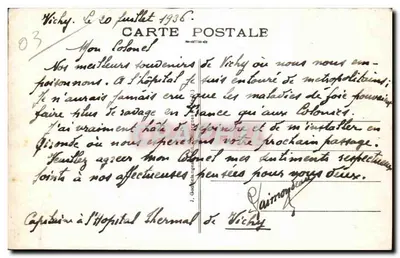 Vichy. le 20 Juillet 1936.
03
CARTE POSTALE
Mon Colonel
Nos meilleurs souvenirs de Vichy où nous nous em-
poisonnons. A l'hôpital je suis entouré de metropolitains;
Je n'aurais jamais cru que les maladies de foie pouvaient
faire plus de ravage en France qu'aux Colonies.
J'ai vraiment hâte de et de m'installer en
Gironde où nous espérons votre prochain passage.
Veuillez agreer mon Colonel mes sentiments respectueux
joints à nos affectueuses pensées pour vous deux.
Capitaine à l'Hopital thermal de Vichy